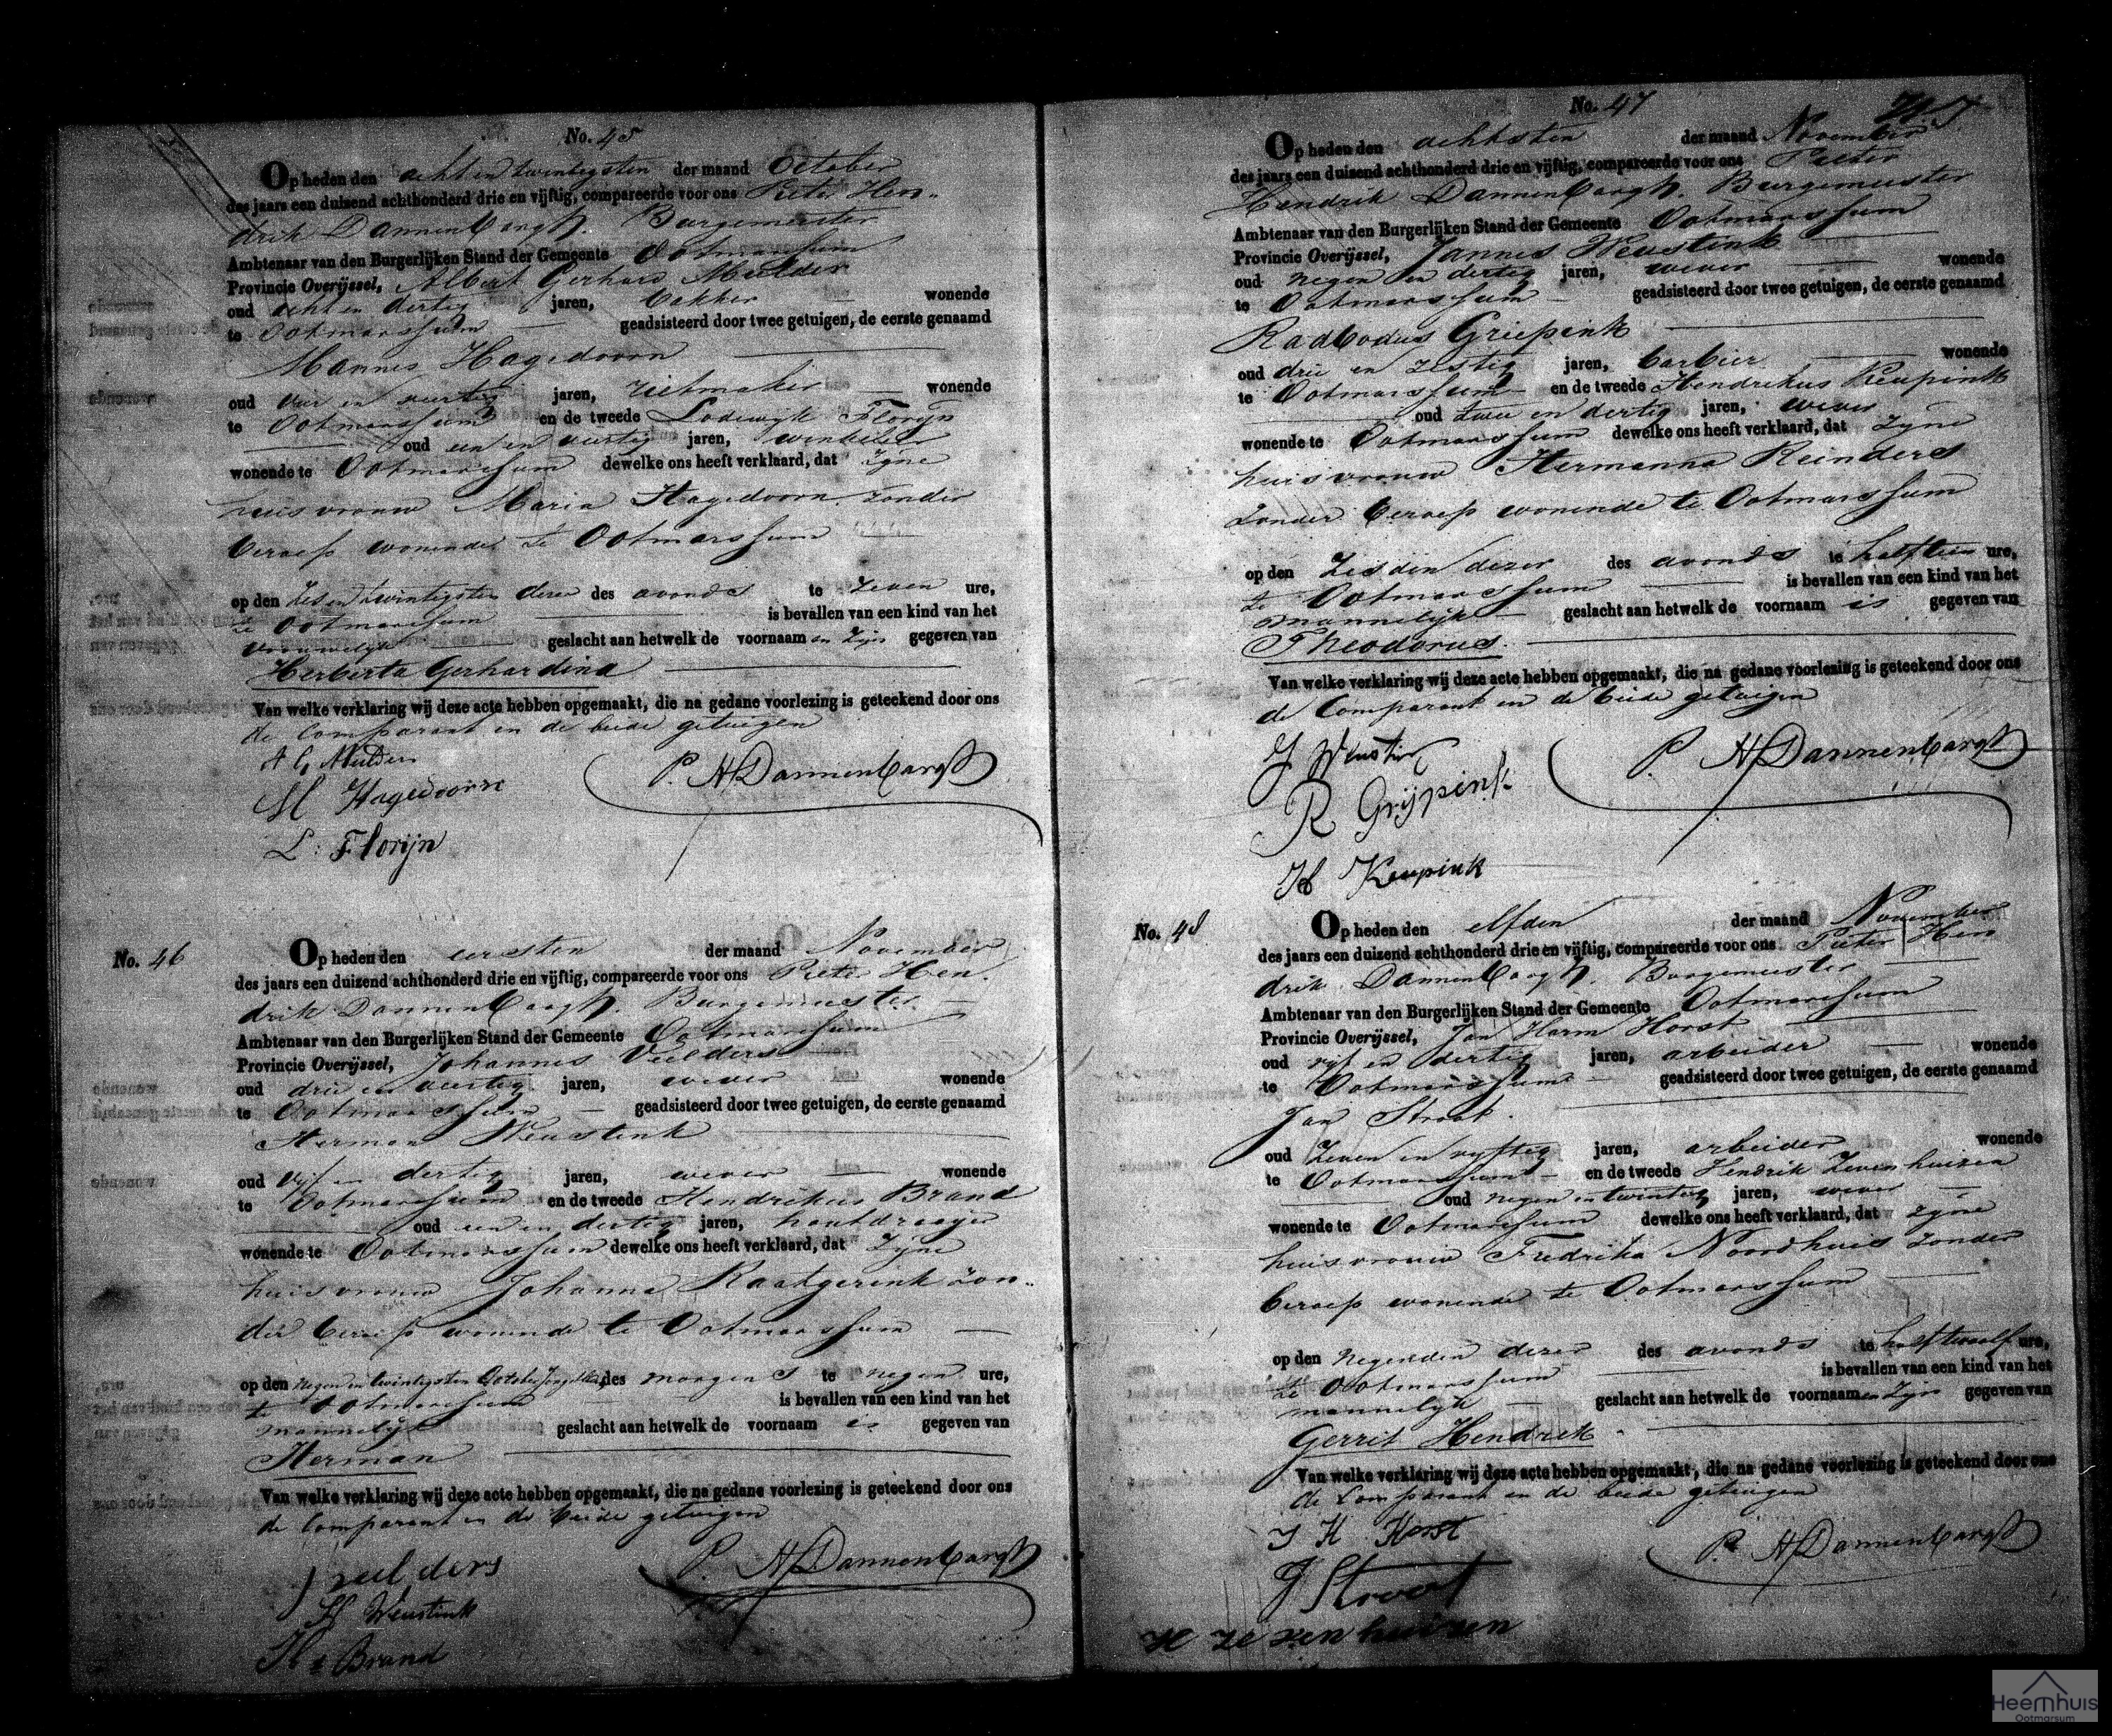 No. 45
Op heden den acht en twintigsten der maand October
des jaars een duizend achthonderd drie en vijftig, compareerde voor ons Pieter Hen-
drik Dannenbargh. Burgemeester
Ambtenaar van den Burgerlijken Stand der Gemeente Ootmarssum
Provincie Overijssel, Albert Gerhard Mulder
oud acht en dertig jaren, bakker wonende
te Ootmarssum geadsisteerd door twee getuigen, de eerste genaamd
Mannes Hagedoorn
oud vier en veertig jaren, wonende
te Ootmarssum en de tweede Lodewyk Floryn
oud een en veertig jaren, winkelier
wonende te Ootmarssum dewelke ons heeft verklaard, dat zyne
huisvrouw Maria Hagedoorn zonder
beroep wonende te Ootmarssum
op den zes en twintigsten dezer des avonds te zeven ure,
te Ootmarssum is bevallen van een kind van het
vrouwelyk geslacht aan hetwelk de voornaam en zyn gegeven van
Herberta Gerhardina
Van welke verklaring wij deze acte hebben opgemaakt, die na gedane voorlezing is geteekend door ons
de Comparant en de beide getuigen
A G Mulder
P. H Dannenbargh
M Hagedoorn
L: Florijn
No. 46
Op heden den eersten der maand November
des jaars een duizend achthonderd drie en vijftig, compareerde voor ons Pieter Hen-
drik Dannenbargh. Burgemeester
Ambtenaar van den Burgerlijken Stand der Gemeente Ootmarssum
Provincie Overijssel, Johannes Veelders
oud drie en veertig jaren, wever wonende
te Ootmarssum geadsisteerd door twee getuigen, de eerste genaamd
Herman Weustink
oud vijf en dertig jaren, wever wonende
te Ootmarssum en de tweede Hendrikus Brand
oud een en dertig jaren, houtdraayer
wonende te Ootmarssum dewelke ons heeft verklaard, dat zyne
huisvrouw Johanna Raatgerink zon-
der beroep wonende te Ootmarssum
op den negen en twintigsten October jongstleden des morgens te negen ure,
te Ootmarssum is bevallen van een kind van het
mannelyk geslacht aan hetwelk de voornaam is gegeven van
Herman
Van welke verklaring wij deze acte hebben opgemaakt, die na gedane voorlezing is geteekend door ons
de Comparant en de beide getuigen
J veelders
P. H Dannenbargh
H Weustink
H Brand
No. 47
Op heden den achtsten der maand November
des jaars een duizend achthonderd drie en vijftig, compareerde voor ons Pieter
Hendrik Dannenbargh. Burgemeester
Ambtenaar van den Burgerlijken Stand der Gemeente Ootmarssum
Provincie Overijssel, Jannes Weustink
oud negen en dertig jaren, wever wonende
te Ootmarssum geadsisteerd door twee getuigen, de eerste genaamd
Radbodus Griepink
oud drie en zestig jaren, barbier wonende
te Ootmarssum en de tweede Hendrikus Keupink
oud twee en dertig jaren, wever
wonende te Ootmarssum dewelke ons heeft verklaard, dat zyne
huisvrouw Hermanna Reinders
zonder beroep wonende te Ootmarssum
op den zesden dezer des avonds te half tien ure,
te Ootmarssum is bevallen van een kind van het
mannelyk geslacht aan hetwelk de voornaam is gegeven van
Theodorus.
Van welke verklaring wij deze acte hebben opgemaakt, die na gedane voorlezing is geteekend door ons
de Comparant en de beide getuigen
J Weustink
P. H Dannenbargh
R Grijpink
H Keupink
No. 48
Op heden den elfden der maand November
des jaars een duizend achthonderd drie en vijftig, compareerde voor ons Pieter Hen
drik Dannenbargh. Burgemeester
Ambtenaar van den Burgerlijken Stand der Gemeente Ootmarssum
Provincie Overijssel, Jan Harm Horst
oud vijf en dertig jaren, arbeider wonende
te Ootmarssum geadsisteerd door twee getuigen, de eerste genaamd
Jan Stroot.
oud zeven en vyftig jaren, arbeider wonende
te Ootmarssum en de tweede Hendrik Zevenhuizen
oud negen en twintig jaren, wever
wonende te Ootmarssum dewelke ons heeft verklaard, dat zyne
huisvrouw Fredrika Noordhuis zonder
beroep wonende te Ootmarssum
op den negenden dezer des avonds te half twaalf ure,
te Ootmarssum is bevallen van een kind van het
mannelyk geslacht aan hetwelk de voornaam en zyn gegeven van
Gerrit Hendrik
Van welke verklaring wij deze acte hebben opgemaakt, die na gedane voorlezing is geteekend door ons
de Comparant en de beide getuigen
J H Horst
P. H Dannenbargh
J Stroot
H Zevenhuizen
Heemhuis
Ootmarsum